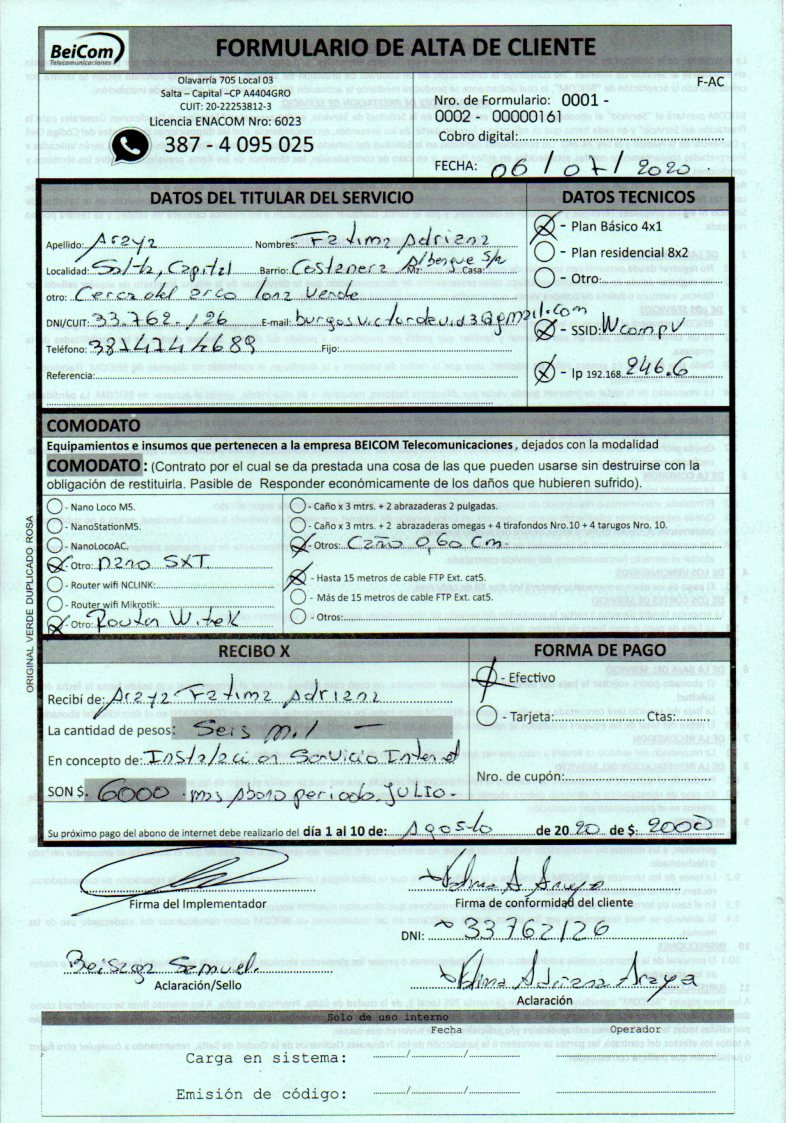 BeiCom
Telecomunicaciones
FORMULARIO DE ALTA DE CLIENTE
Olavarría 705 Local 03
Salta – Capital –CP A4404GRO
CUIT: 20-22253812-3
Licencia ENACOM Nro: 6023
387 - 4 095 025
F-AC
Nro. de Formulario: 0001 -
0002 - 00000161
Cobro digital:
FECHA: 06 / 07 / 2020
DATOS DEL TITULAR DEL SERVICIO
Apellido: Araya Nombres: Fatima Adriana
Localidad: Salta, Capital Barrio: Costanera Mz: Albergue S/n Casa:
otro: Cerca del arco lona verde
DNI/CUIT: 33.762.126 E-mail: burgosvictordavid3@gmail.com
Teléfono: 3874744689 Fijo:
Referencia:
DATOS TECNICOS
- Plan Básico 4x1
- Plan residencial 8x2
- Otro:
- SSID: Wcompu
- Ip 192.168. 246.6
COMODATO
Equipamientos e insumos que pertenecen a la empresa BEICOM Telecomunicaciones, dejados con la modalidad
COMODATO : (Contrato por el cual se da prestada una cosa de las que pueden usarse sin destruirse con la
obligación de restituirla. Pasible de Responder económicamente de los daños que hubieren sufrido).
- Nano Loco M5.
- NanoStationM5.
- NanoLocoAC,
- Otro: nano SXT
- Router wifi NCLINK:
- Router wifi Mikrotik:
- Otro: Router Witek
- Caño x 3 mtrs. + 2 abrazaderas 2 pulgadas.
- Caño x 3 mtrs. + 2 abrazaderas omegas + 4 tirafondos Nro.10 + 4 tarugos Nro. 10.
- Otros: Caño 0,60 Cm.
- Hasta 15 metros de cable FTP Ext. cat5.
- Más de 15 metros de cable FTP Ext. cat5.
- Otros:
ORIGINAL VERDE DUPLICADO ROSA
RECIBO X
Recibí de: Araya Fatima Adriana
La cantidad de pesos: Seis mil —
En concepto de: Instalación Servicio Internet
SON $. 6000 . mas abono periodo JULIO -
FORMA DE PAGO
- Efectivo
- Tarjeta: Ctas:
Nro. de cupón:
Su próximo pago del abono de internet debe realizarlo del día 1 al 10 de: Agosto de 20 20 de $: 2000
Firma del Implementador
Firma de conformidad del cliente
DNI: 33762126
Beisaga Samuel.
Aclaración/Sello
Fatima Adriana Araya
Aclaración
Solo de uso interno
Fecha Operador
Carga en sistema: / /
Emisión de código: / /